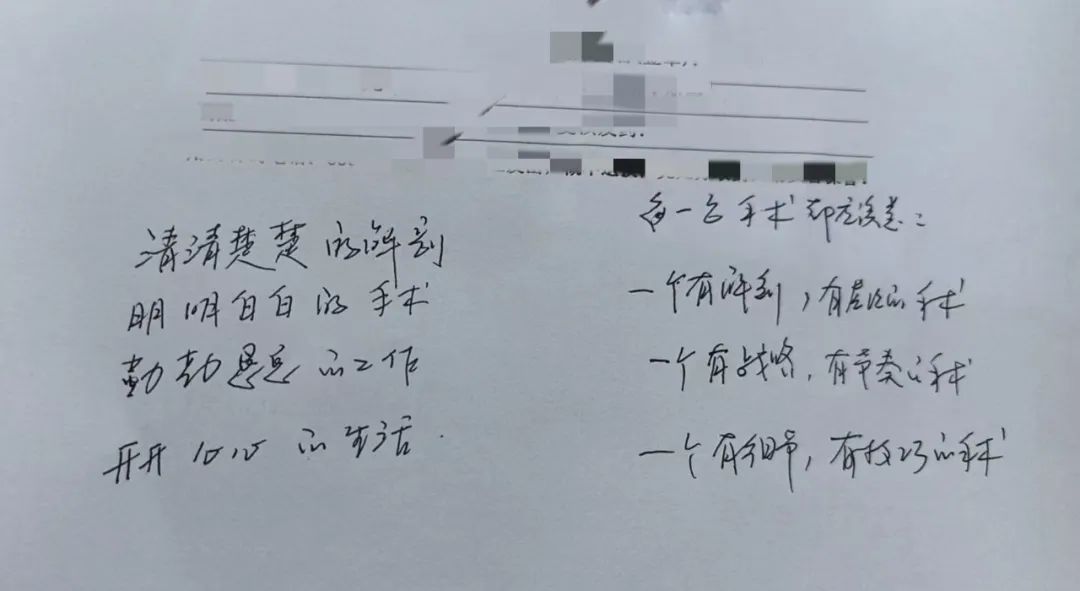 清清楚楚的解剖
明明白白的手术
勤勤恳恳的工作
开开心心的生活.
每一台手术都应该是：
一个有解剖，有层次的手术
一个有战略，有节奏的手术
一个有细节，有技巧的手术